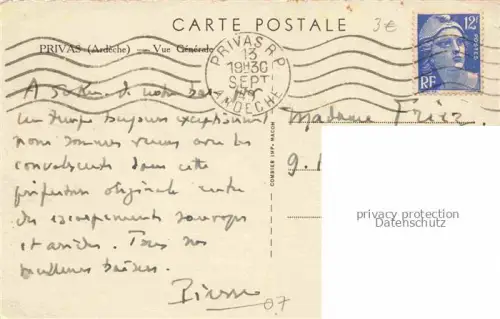 CARTE POSTALE
3€
12F
POSTES
RF
PRIVAS (Ardèche) — Vue Générale
PRIVAS R.P.
13
19H30
SEPT
ARDECHE
Madame
9.
COMBIER IMP. MACON
privacy protection
Datenschutz
A
un temps toujours exceptionnel
nous sommes venus avec les
convalescents dans cette
préfecture originale entre
des escarpements sauvages
et arides. Tous nos
meilleurs baisers.
Pierre
07